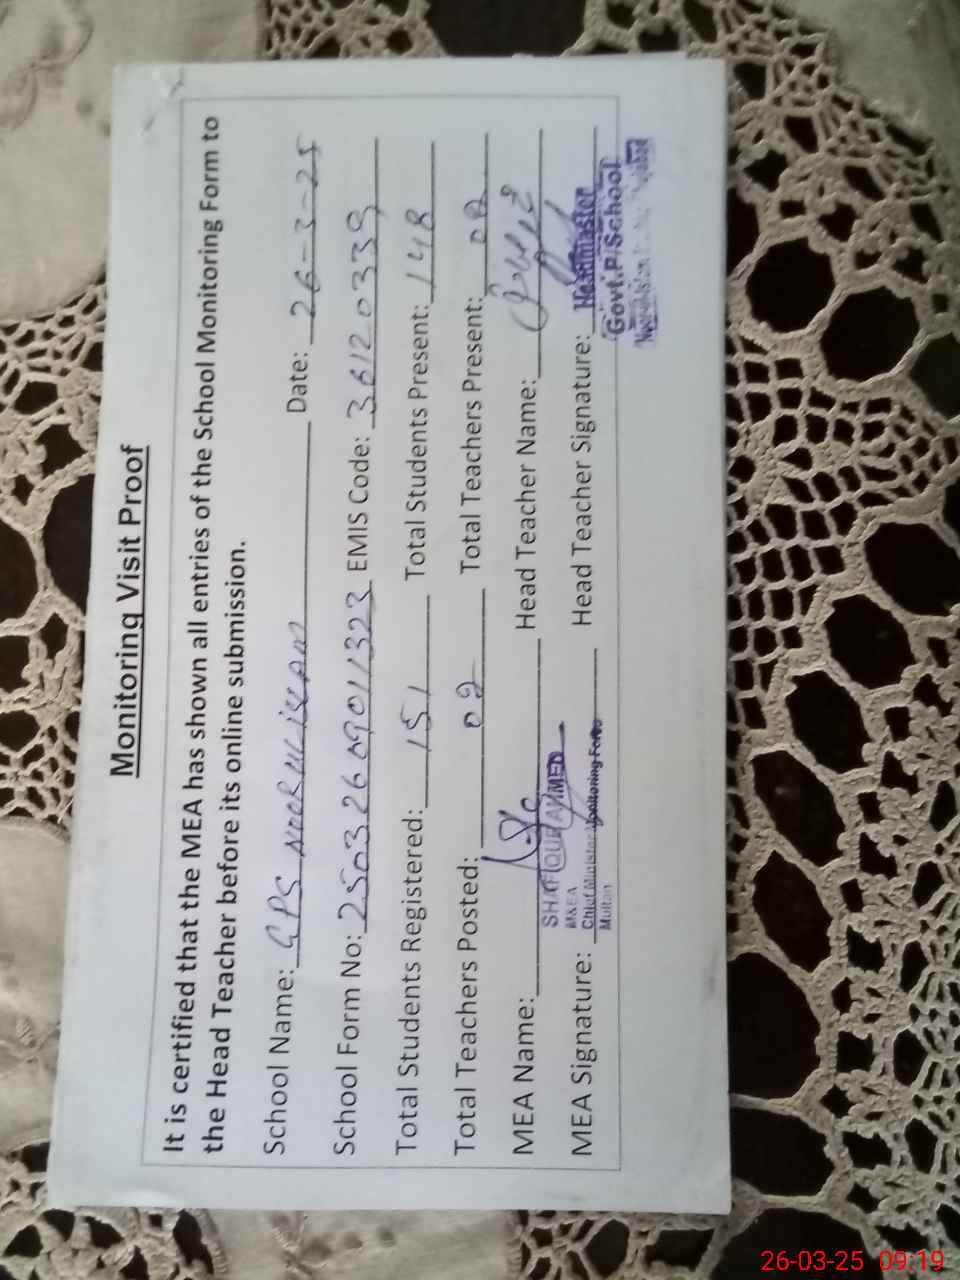 Monitoring Visit Proof
It is certified that the MEA has shown all entries of the School Monitoring Form to
the Head Teacher before its online submission.
School Name: GPS Date: 26-3-25
School Form No: EMIS Code: 36120339
Total Students Registered: 151 Total Students Present: 148
Total Teachers Posted: 02 Total Teachers Present: 02
MEA Name: Head Teacher Name:
SHAFIQUE AHMED
M&EA
MEA Signature: Chief Minister Monitoring Force Head Teacher Signature: Headmaster
Multan
Govt. P/School
26-03-25 09:19